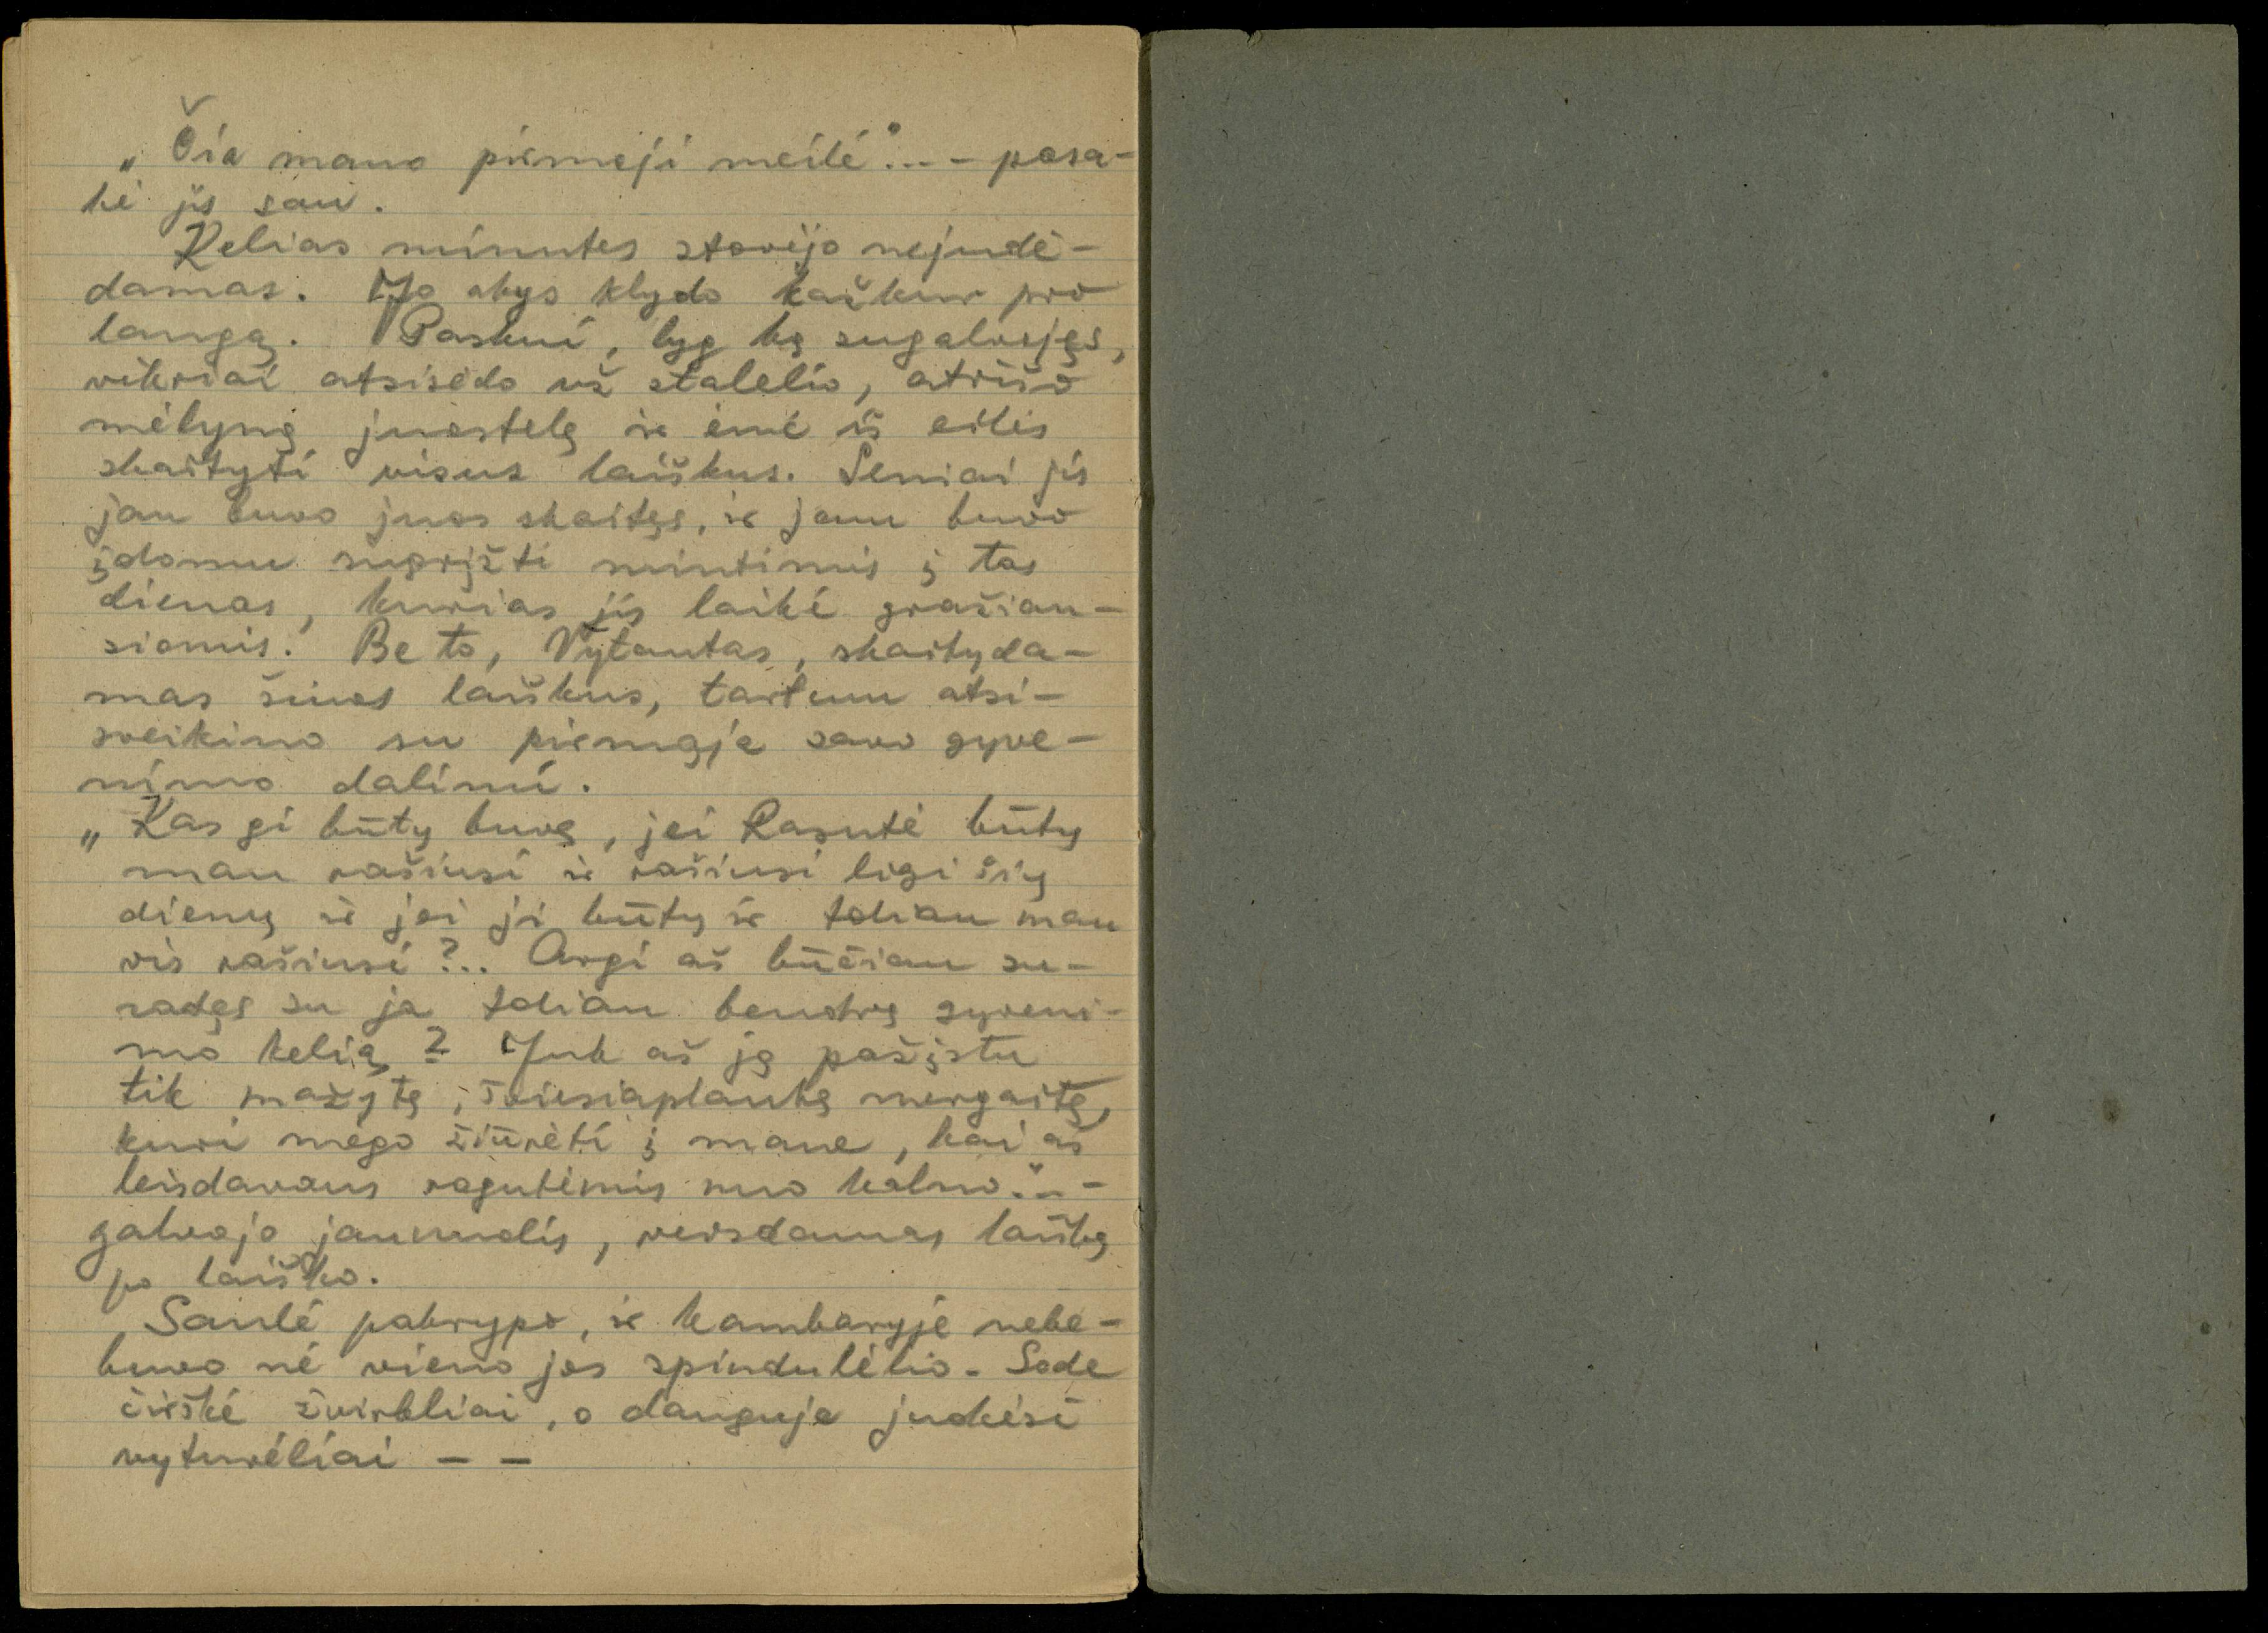 „Čia mano pirmoji meilė“... - pasa-
kė jis sau.
Kelias minutes stovėjo nejudė-
damas. Jo akys klydo kažkur pro
langą. Paskui, lyg ką sugalvojęs,
vikriai atsisėdo už stalelio, atrišo
mėlyną juostelę ir ėmė iš eilės
skaityti visus laiškus. Seniai jis
jau buvo juos skaitęs, ir jam buvo
įdomu sugrįžti mintimis į tas
dienas, kurias jis laikė gražiau-
siomis. Be to, Vytautas, skaityda-
mas šiuos laiškus, tartum atsi-
sveikino su pirmąja savo gyve-
nimo dalimi.
„Kas gi būtų buvę, jei Rasutė būtų
man rašiusi ir rašiusi ligi šių
dienų ir jei ji būtų ir toliau man
vis rašiusi?.. Argi aš būčiau su-
radęs su ja toliau bendrą gyveni-
mo kelią? Juk aš ją pažįstu
tik mažytę, šviesiaplaukę mergaitę,
kuri mėgo žiūrėti į mane, kai aš
leisdavaus rogutėmis nuo kalno“... -
galvojo jaunuolis, versdamas laišką
po laiško.
Saulė pakrypo, ir kambaryje nebe-
buvo nė vieno jos spindulėlio. Sode
čirškė žvirbliai, o danguje juokėsi
vyturėliai - -